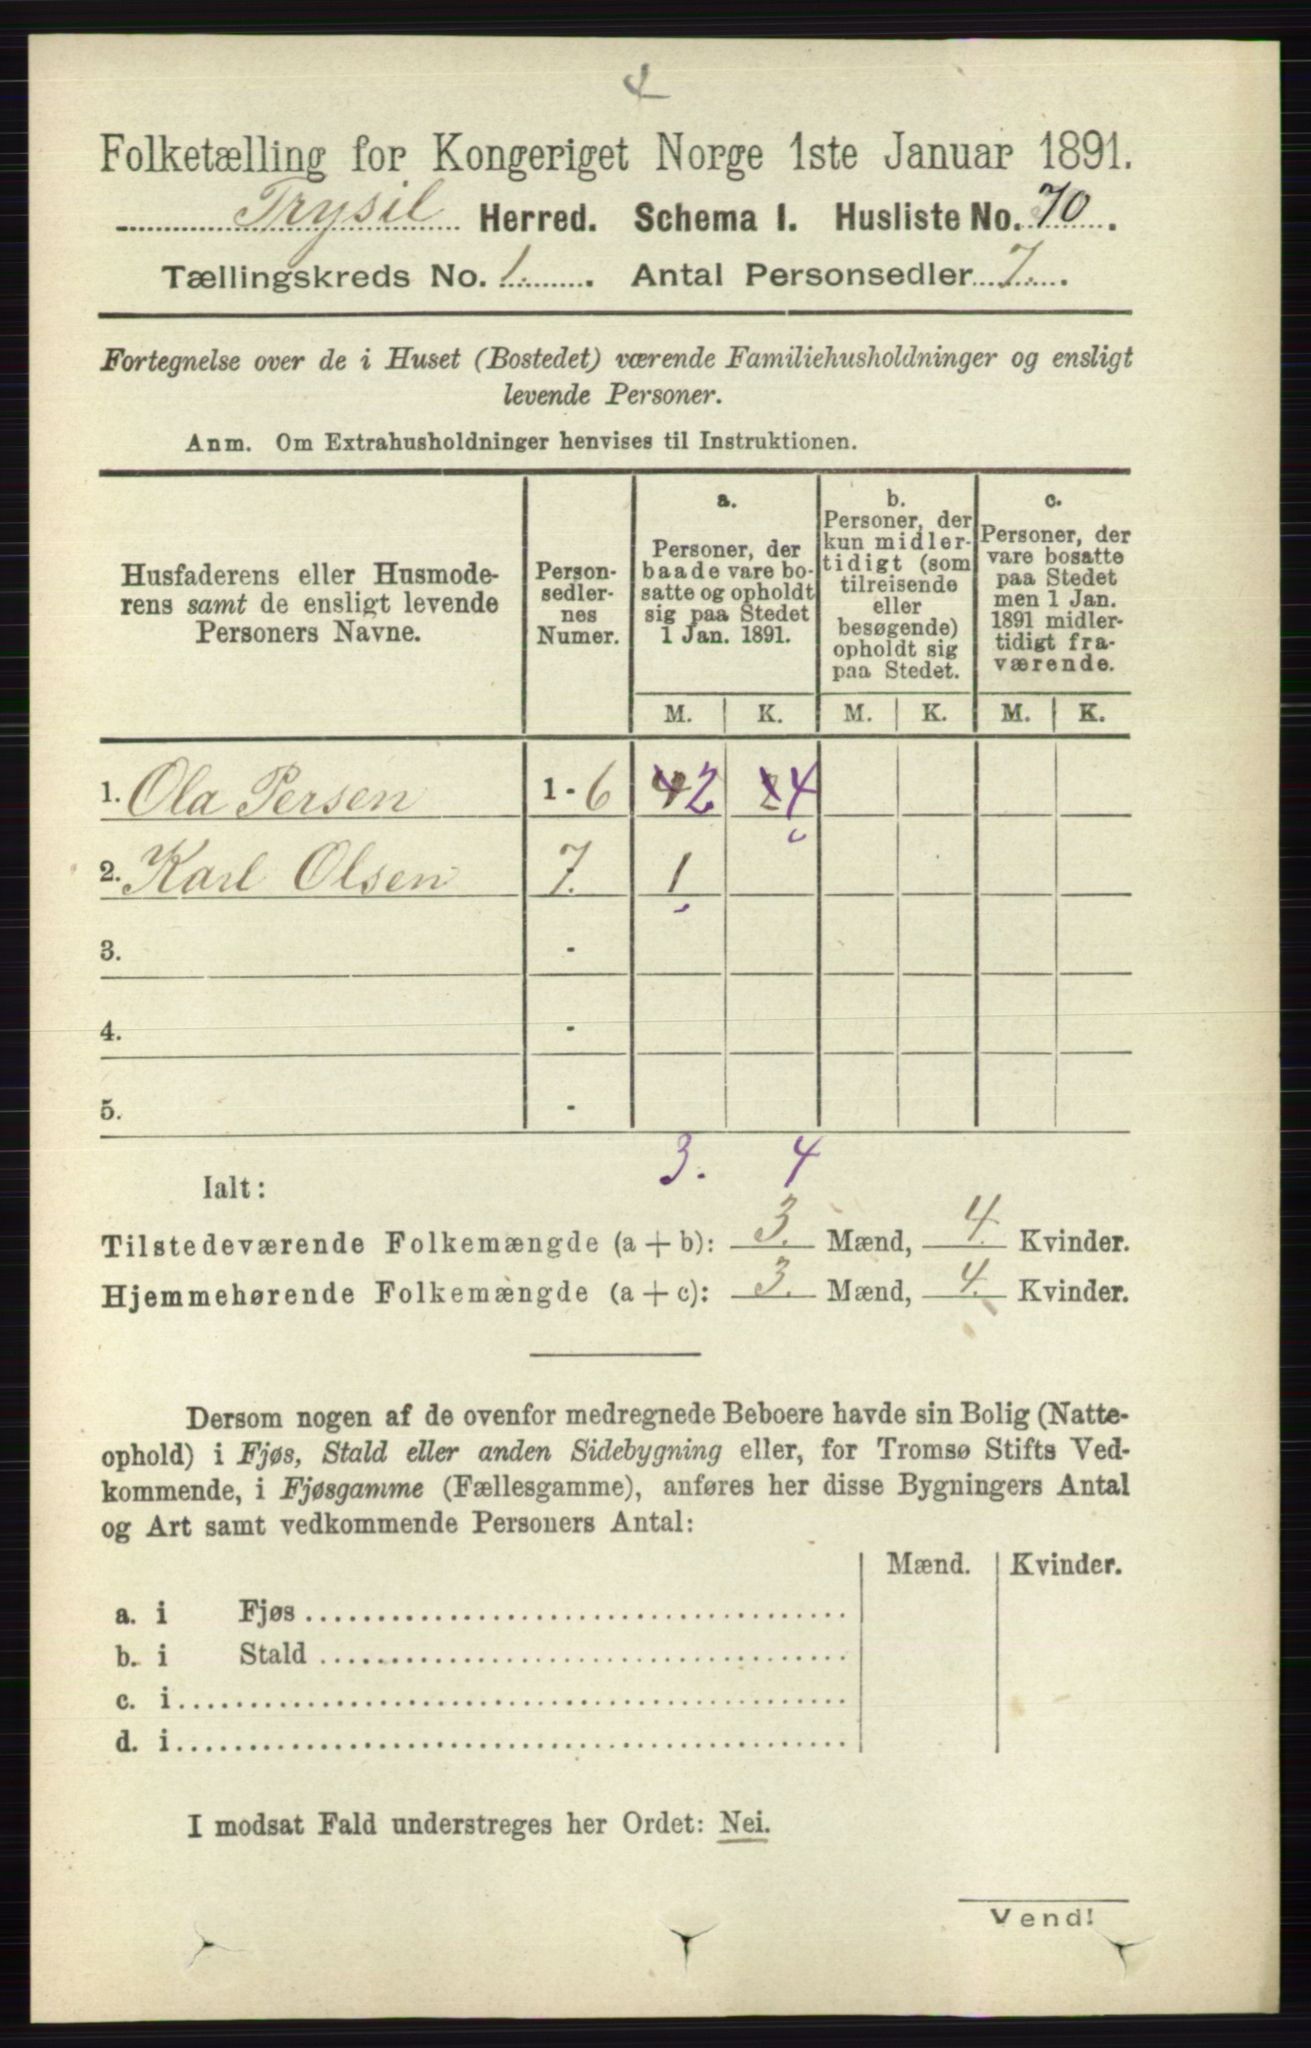 4
Folketælling for Kongeriget Norge 1ste Januar 1891.
Trysil Herred. Schema I. Husliste No. 70.
Tællingskreds No. 1. Antal Personsedler 7.
Fortegnelse over de i Huset (Bostedet) værende Familiehusholdninger og ensligt
levende Personer.
Anm. Om Extrahusholdninger henvises til Instruktionen.
Husfaderens eller Husmode-
rens samt de ensligt levende
Personers Navne.
Person-
sedler-
nes
Numer.
a.
Personer, der
baade vare bo-
satte og opholdt
sig paa Stedet
1 Jan. 1891.
b.
Personer, der
kun midler-
tidigt (som
tilreisende
eller
besøgende)
opholdt sig
paa Stedet.
c.
Personer, der
vare bosatte
paa Stedet
men 1 Jan.
1891 midler-
tidigt fra-
værende.
M. K. M. K. M. K.
1. Ola Persen 1 - 6 2 4
2. Karl Olsen 7. 1
3. -
4. -
5. -
3. 4
Ialt:
Tilstedeværende Folkemængde (a + b): 3. Mænd, 4. Kvinder.
Hjemmehørende Folkemængde (a + c): 3. Mænd, 4. Kvinder.
Dersom nogen af de ovenfor medregnede Beboere havde sin Bolig (Natte-
ophold) i Fjøs, Stald eller anden Sidebygning eller, for Tromsø Stifts Ved-
kommende, i Fjøsgamme (Fællesgamme), anføres her disse Bygningers Antal
og Art samt vedkommende Personers Antal:
Mænd. Kvinder.
a. i Fjøs
b. i Stald
c. i
d. i
I modsat Fald understreges her Ordet: Nei.
Vend!